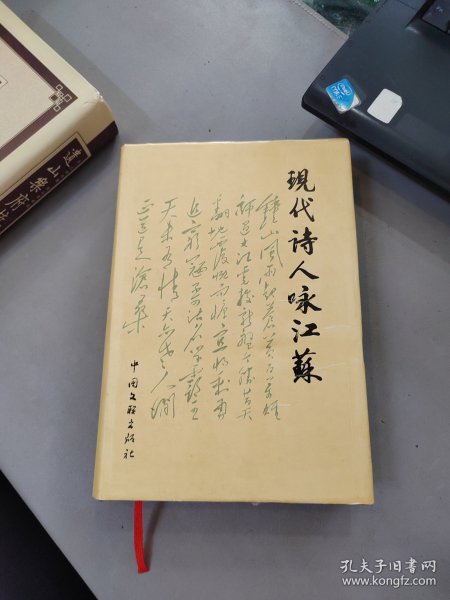 現代诗人咏江蘇
鍾山風雨起蒼黃百万雄
師过大江虎踞龍盤今勝昔天
翻地覆慨而慷宜将剩勇
追窮寇不可沽名学霸王
天若有情天亦老人间
正道是滄桑
中国文联出版社
遺山樂府
孔夫子旧书网
www.kongfz.com